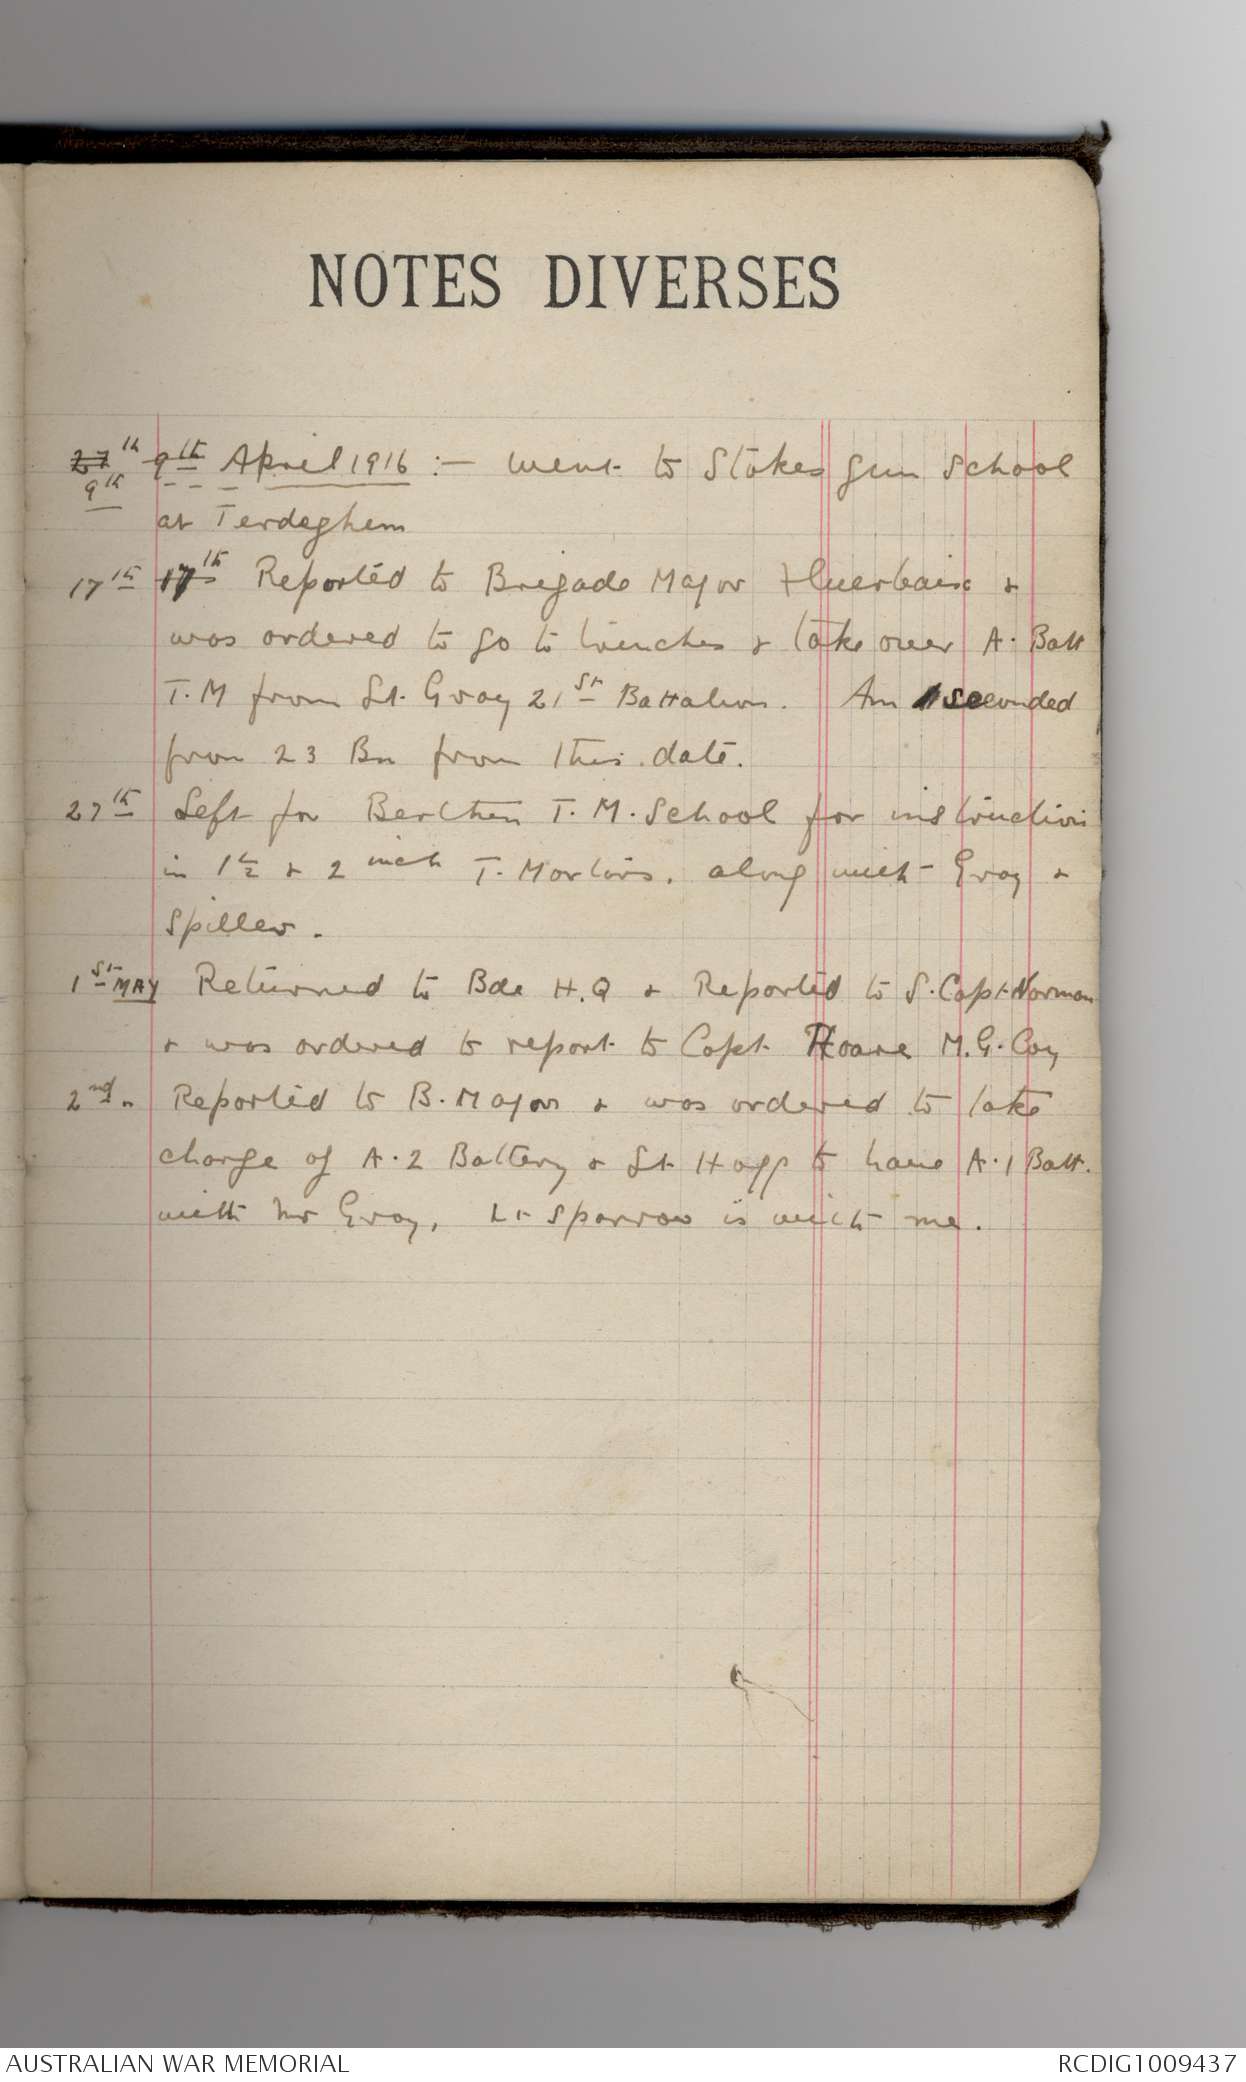 NOTES DIVERSES
27th 9th April 1916 :- Went to Stokes gun School
9th
at Terdeghem
17th 17th Reported to Brigade Major Fluerbaix &
was ordered to go to trenches & take over A. Batt
T.M from Lt. Gray 21st Battalion. Am seconded
from 23 Bn from this date.
27th Left for Berthen T. M. School for instruction
in 1½ & 2 inch T. Mortars. along with Gray &
Spiller.
1st MAY Returned to Bde H.Q & Reported to S. Capt. Norman
& was ordered to report to Capt. Hoare M.G. Coy
2nd. Reported to B. Major & was ordered to take
charge of A.2 Battery & Lt. Hogg to have A.1 Batt.
with Mr Gray. Lt Sparrow is with me.
AUSTRALIAN WAR MEMORIAL
RCDIG1009437